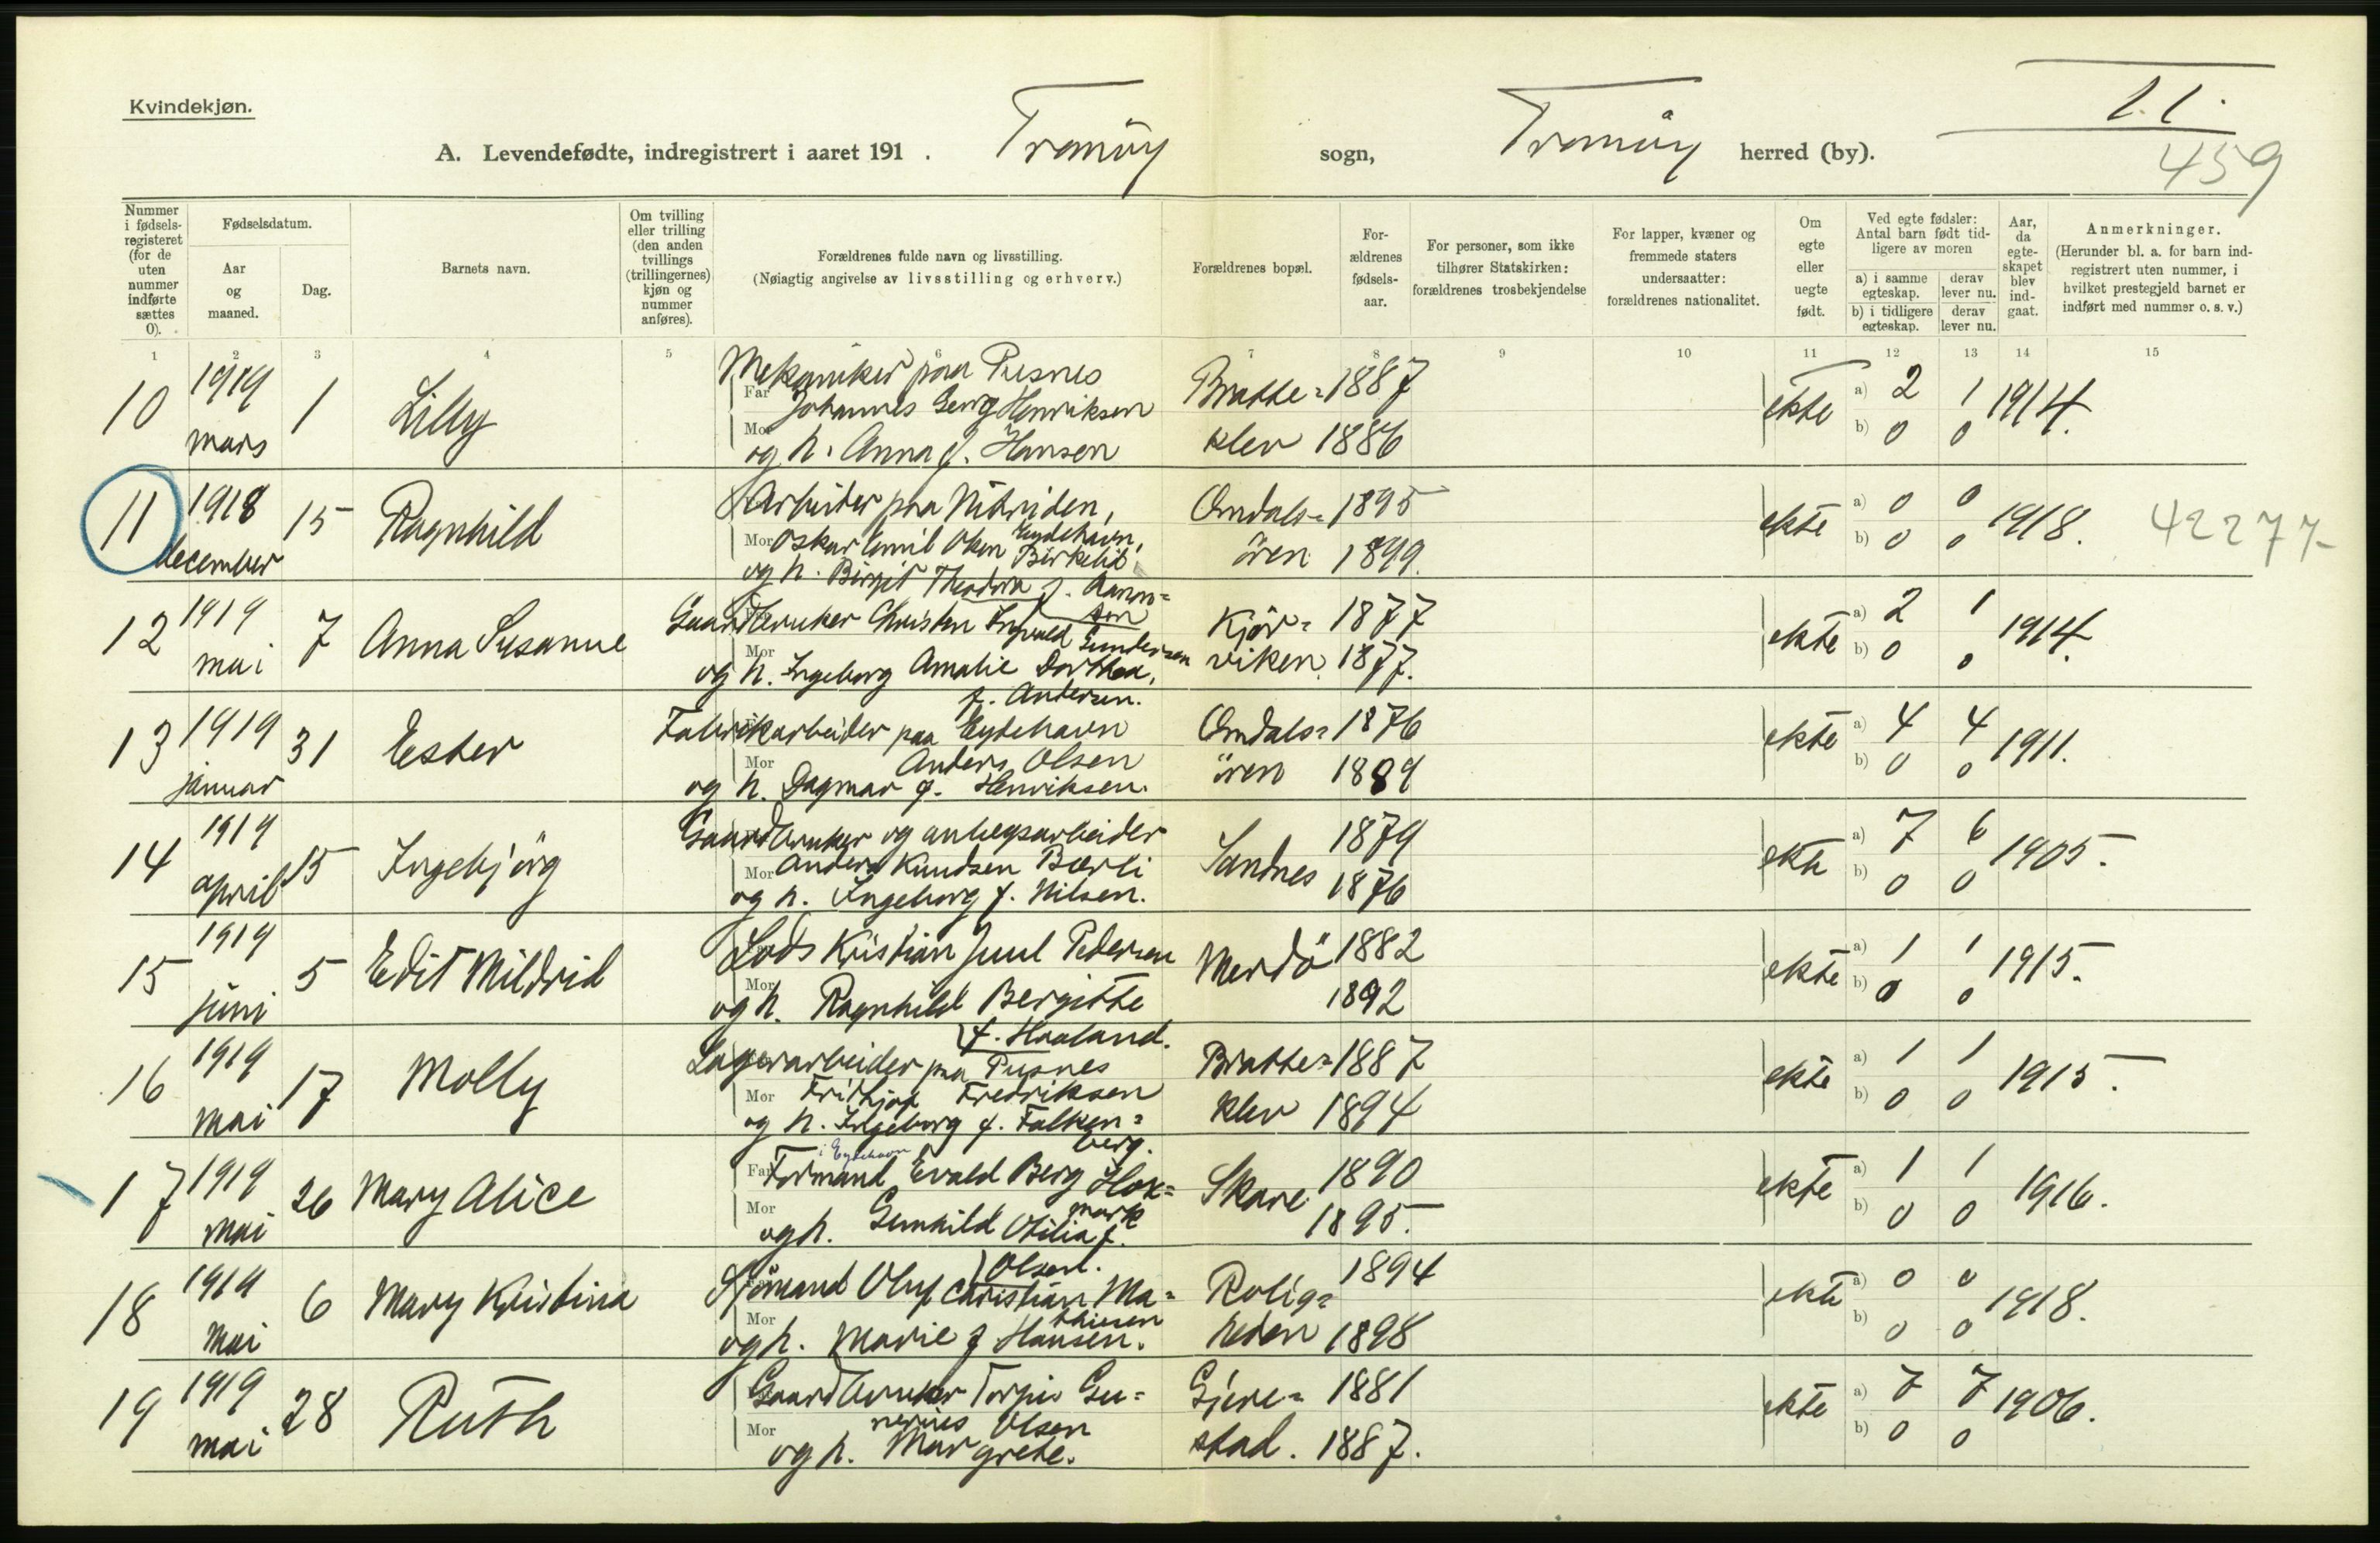 Kvindekjøn.
A. Levendefødte, indregistrert i aaret 191 . Tromöy sogn, Tromöy herred (by).
459
Nummer i fødsels-registeret (for de uten nummer indførte sættes 0).
Fødselsdatum.
Aar og maaned.
Dag.
Barnets navn.
Om tvilling eller trilling (den anden tvillings (trillingernes) kjøn og nummer anføres).
Forældrenes fulde navn og livsstilling.
(Nøiagtig angivelse av livsstilling og erhverv.)
Forældrenes bopæl.
For-ældrenes fødsels-aar.
For personer, som ikke tilhører Statskirken: forældrenes trosbekjendelse
For lapper, kvæner og fremmede staters undersaatter: forældrenes nationalitet.
Om egte eller uegte født.
Ved egte fødsler: Antal barn født tid-ligere av moren
a) i samme egteskap.
derav lever nu.
b) i tidligere egteskap.
derav lever nu.
Aar, da egte-skapet blev ind-gaat.
Anmerkninger.
(Herunder bl. a. for barn ind-registrert uten nummer, i hvilket prestegjeld barnet er indført med nummer o. s. v.)
1 2 3 4 5 6 7 8 9 10 11 12 13 14 15
10 1919 mars 1 Lilly
Mekaniker paa Pusnes
Far Johannes Georg Henriksen
Mor og h. Anna f. Hansen
Bratte=klev 1887 1886
ekte a) 2 1 b) 0 0 1914.
11 1918 december 15 Ragnhild
Arbeider paa Nitriden, Eydehavn,
Mor Oskar Emil Olsen Birkelid
og h. Birgit Theodora f. Aanon=sen
Omdals=ören 1895 1899.
ekte a) 0 0 b) 0 0 1918. 42277-
12 1919 mai 7 Anna Susanne
Gaardbruker Christen Ingvald Gundersen
Mor og h. Ingeborg Amalie Dorthea,
f. Andersen.
Kjör=viken 1877 1877.
ekte a) 2 1 b) 0 0 1914.
13 1919 januar 31 Ester
Fabrikarbeider paa Eydehavn
Mor Anders Olsen
og h. Dagmar f. Henriksen.
Omdals=ören 1876 1889
ekte a) 4 4 b) 0 0 1911.
14 1919 april 15 Ingebjörg
Gaardbruker og anlegsarbeider
Mor Anders Knudsen Bærli
og h. Ingeborg f. Nilsen.
Sandnes 1879 1876
ekte a) 7 6 b) 0 0 1905.
15 1919 juni 5 Edit Mildrid
Lods Kristian Juul Pedersen
Mor og h. Ragnhild Bergitte
f. Haaland.
Merdö 1882 1892
ekte a) 1 1 b) 0 0 1915.
16 1919 mai 17 Molly
Lagerarbeider paa Pusnes
Mor Frithjof Fredriksen
og h. Ingeborg f. Falken=berg.
Bratte=klev 1887 1894
ekte a) 1 1 b) 0 0 1915.
17 1919 mai 26 Mary Alice
i Eydehavn
Far Formand Evald Berg Hok=mark
Mor og h. Gunhild Otilia f.
Olsen.
Skare 1890 1895.
ekte a) 1 1 b) 0 0 1916.
18 1919 mai 6 Mary Kristina
Sjömand Oluf Christian Ma=thisen
Mor og h. Marie f Hansen.
Rolig=heden 1894 1898
ekte a) 0 0 b) 0 0 1918.
19 1919 mai 28 Ruth
Gaardbruker Torjus Gu=nerius Olsen
Mor og h. Margrete.
Gjere=stad. 1881 1887.
ekte a) 7 7 b) 0 0 1906.